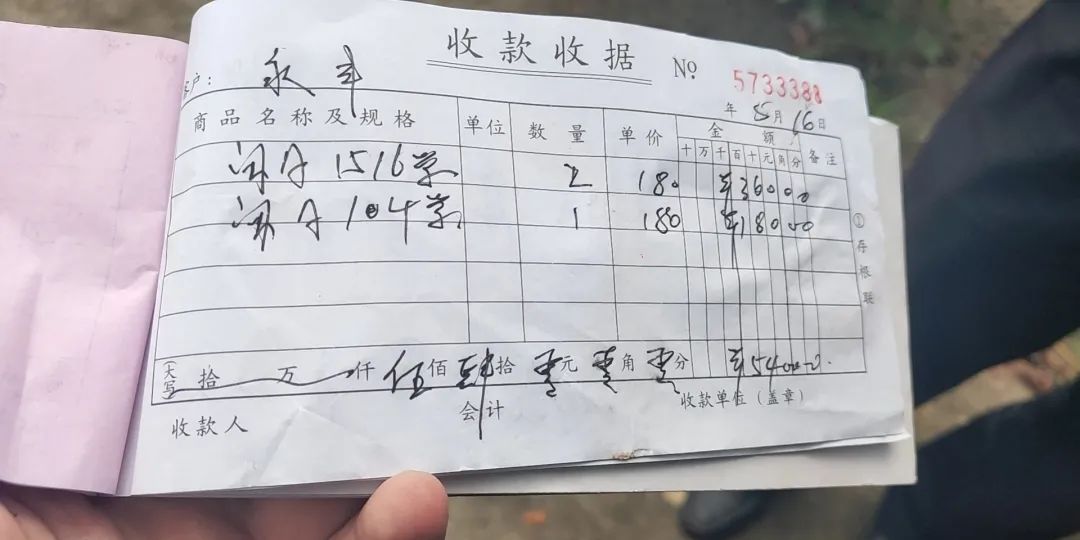 收款收据 № 5733388
客户：永丰
年 5月 16日
商品名称及规格 单位 数量 单价 金额 备注
十 万 千 百 十 元 角 分
闽A 1516学 2 180 ¥36000
闽A 104学 1 180 ¥18000
(大写) 拾 万 仟 伍佰 肆拾 零元 零角 零分 ¥54000
收款人 会计 收款单位（盖章）
①存根联